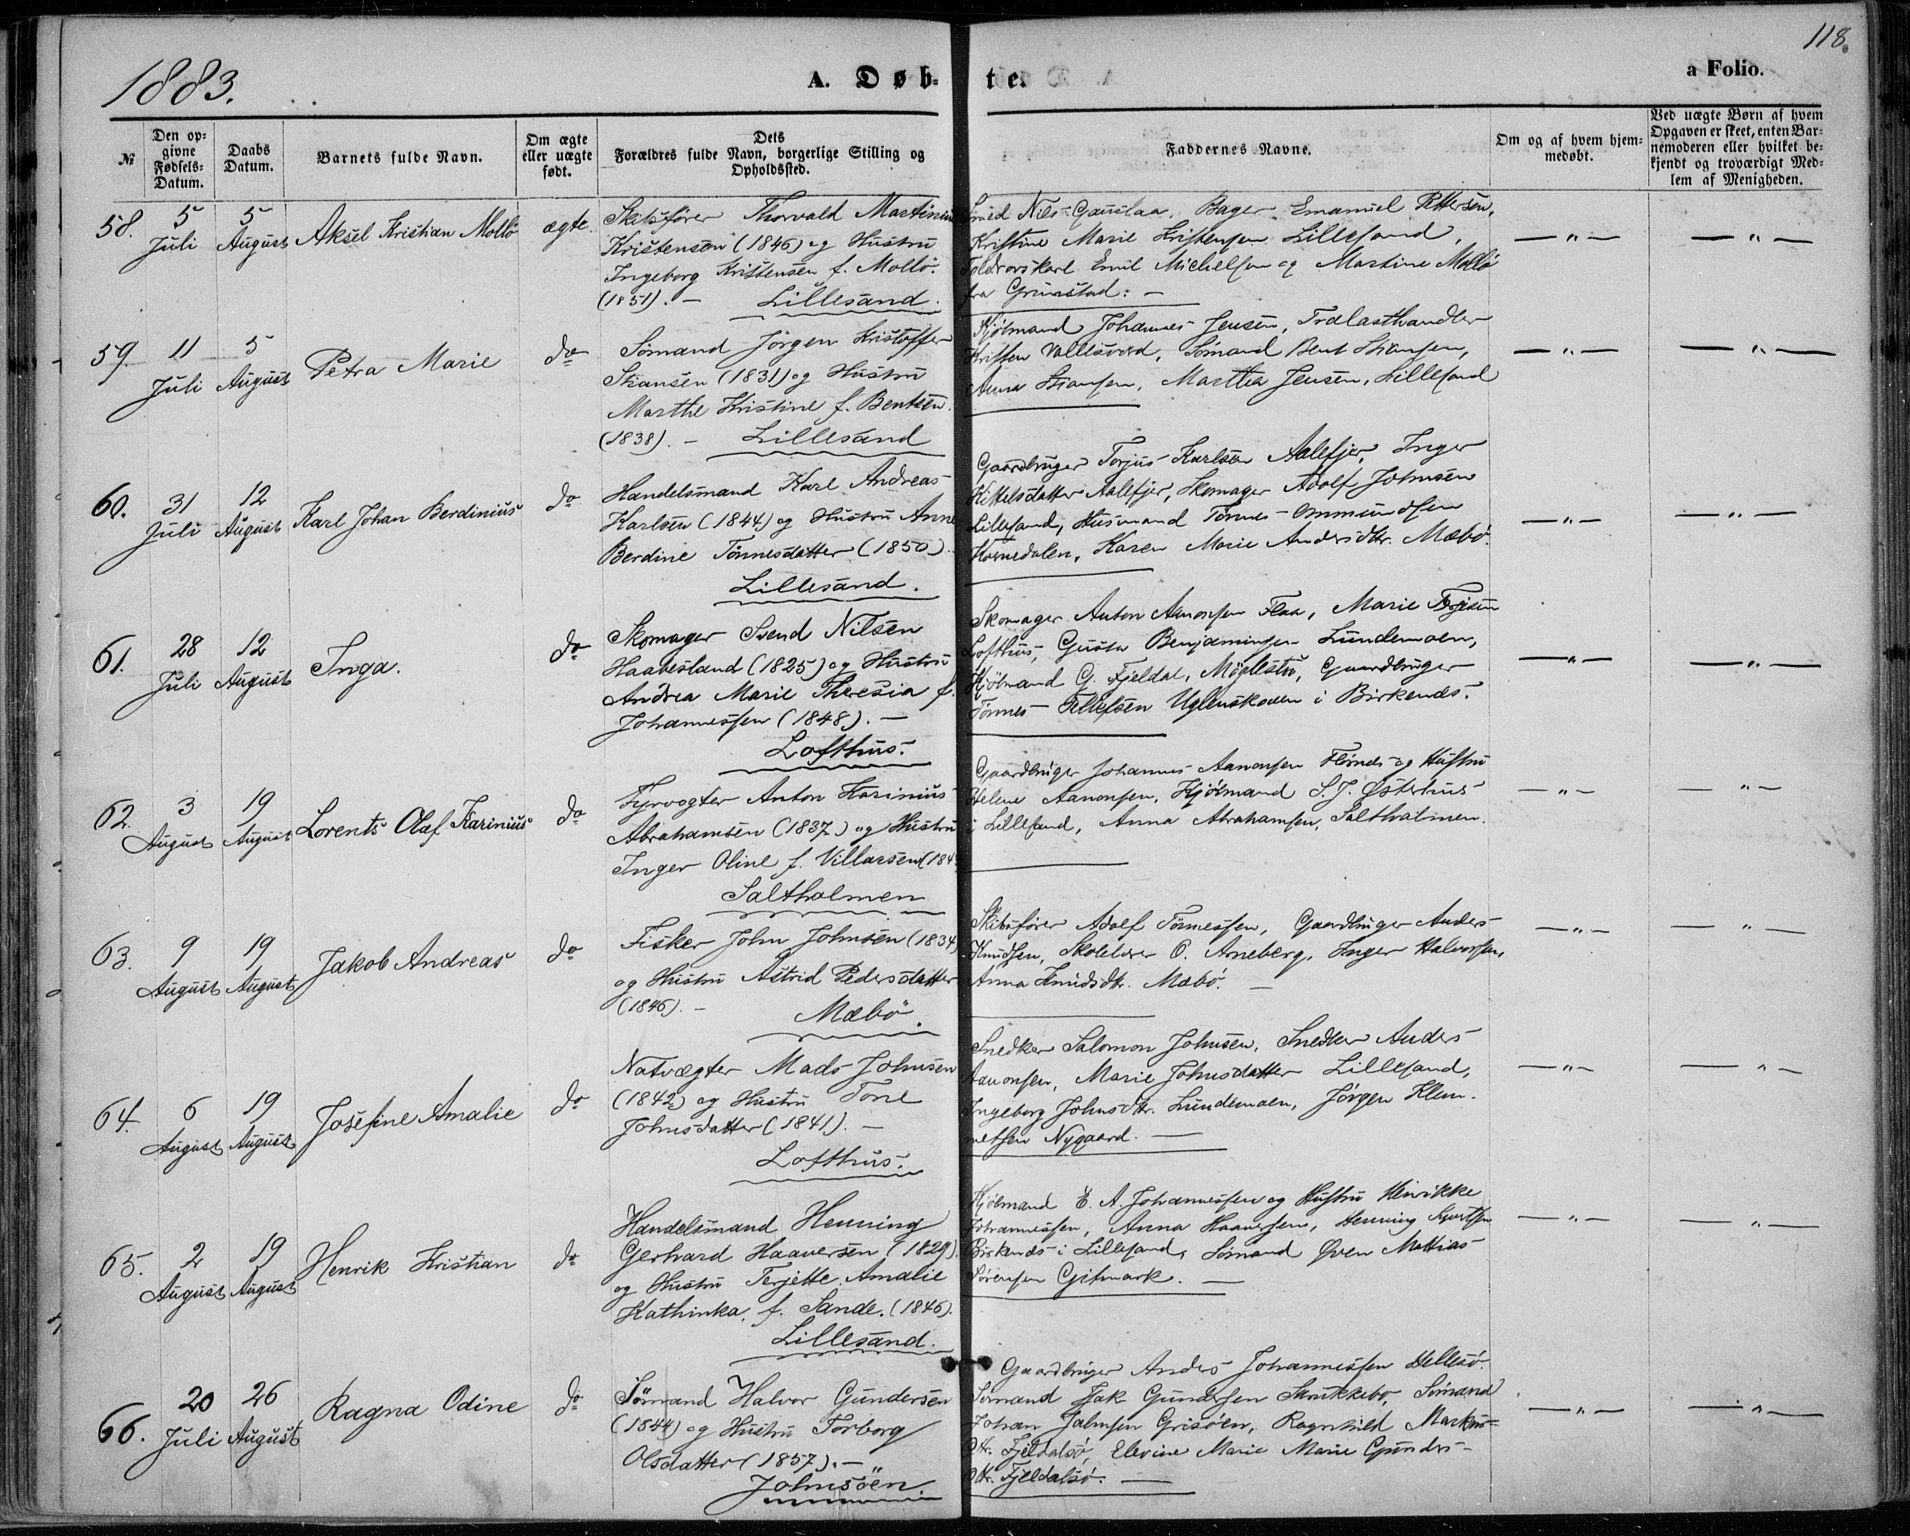 118.
1883.
A. Døb-
te.
a Folio.
№
Den op-
givne
Fødsels-
Datum.
Daabs
Datum.
Barnets fulde Navn.
Om ægte
eller uægte
født.
Dets
Forældres fulde Navn, borgerlige Stilling og
Opholdssted.
Faddernes Navne.
Om og af hvem hjem-
medøbt.
Ved uægte Børn af hvem
Opgaven er skeet, enten Bar-
nemoderen eller hvilket be-
kjendt og troværdigt Med-
lem af Menigheden.
58.
5
Juli
5
August
Aksel Kristian Mollö
ægte.
Skibsfører Thorvald Martinius
Kristensen (1846) og Hustru
Ingeborg Kristensen f. Mollö.
(1851). — Lillesand.
Smed Nils Gauslaa, Bager Emanuel Pettersen,
Kristine Marie Kristensen Lillesand,
Toldrorskarl Emil Michelsen og Martine Mollö
fra Grimstad. —
— „ —
— „ —
59.
11
Juli
5
August
Petra Marie
do
Sömand Jörgen Kristoffer
Skansen (1831) og Hustru
Marthe Kristine f. Bentsen.
(1838). — Lillesand
Kjöbmand Johannes Jensen, Trælasthandler
Kristen Vallesværd, Sömand Bent Skansen,
Anna Skansen, Marthea Jensen, Lillesand
— „ —
— „ —
60.
31
Juli
12
August
Karl Johan Berdinius
do
Handelsmand Karl Andreas
Karlsen (1844) og Hustru Anne
Berdine Tönnesdatter (1850).
Lillesand.
Gaardbruger Torjus Karlsen Aalefjer, Inger
Kittelsdatter Aalefjer, Skomager Adolf Johnsen
Lillesand, Husmand Tönnes Ommundsen
Kornedalen, Karen Marie Andersdtr. Mæbö.
— „ —
— „ —
61.
28
Juli
12
August
Inga.
do
Skomager Svend Nilsen
Haabesland (1825) og Hustru
Andrea Marie Theresia f.
Johannessen (1848). —
Lofthus.
Skomager Anton Aanonsen Flaa, Marie
Lofthus, Gusta Benjaminsen Lundemoen,
Kjöbmand G. Fjeldal, Möglestu, Gaardbruger
Tönnes Tellefsen Uglenskoven i Birkenæs.
— „ —
— „ —
62.
3
August
19
August
Lorents Olaf Karinius
do
Fyrvogter Anton Karinius
Abrahamsen (1837) og Hustru
Inger Oline f. Villarsen (184
Saltholmen
Gaardbruger Johannes Aanonsen og Hustru
Helene Aanonsen, Kjöbmand S. J. Østerhus
i Lillesand, Anna Abrahamsen, Saltholmen.
— „ —
— „ —
63.
9
August
19
August
Jakob Andreas
do
Fisker John Johnsen (1834)
og Hustru Astrid Pedersdatter
(1846). — Mæbö.
Skibsfører Adolf Tönnessen, Gaardbruger Anders
Knudsen, Skolelærer O. Arneberg, Inger Halvorsen,
Anna Knudsdtr. Mæbö. —
— „ —
— „ —
64.
6
August
19
August
Josefine Amalie
do
Natvægter Mads Johnsen
(1842) og Hustru Tone
Johnsdatter (1841). —
Lofthus.
Snedker Salomon Johnsen, Snedker Anders
Aanonsen, Marie Johnsdatter Lillesand,
Ingeborg Johnsdtr. Lundemoen, Jörgen Klem-
metsen Nygaard. —
— „ —
— „ —
65.
2
August
19
August
Henrik Kristian
do
Handelsmand Henning
Gerhard Haaversen (1829)
og Hustru Terjette Amalie
Kathinka, f. Sande. (1846).
Lillesand.
Kjöbmand E. A. Johannessen og Hustru Henrikke
Johannessen, Anna Haaversen, Henning
Birkenæs i Lillesand, Sömand Oven Mathias
Sörensen Gitmark. —
— „ —
— „ —
66.
20
Juli
26
August
Ragna Odine
do
Sömand Halvor Gundersen
(1844) og Hustru Torborg
Olsdatter (1857). —
Johnsöen.
Gaardbruger Anders Johannessen Hellesö.
Sömand Isak Gundersen Skrukkebo, Sömand
Johan Jakobsen Grisöen, Ragnhild Markus-
dtr. Fjeldalsö, Elevine Marie Marie Gunders-
dtr. Fjeldalsö. —
— „ —
— „ —